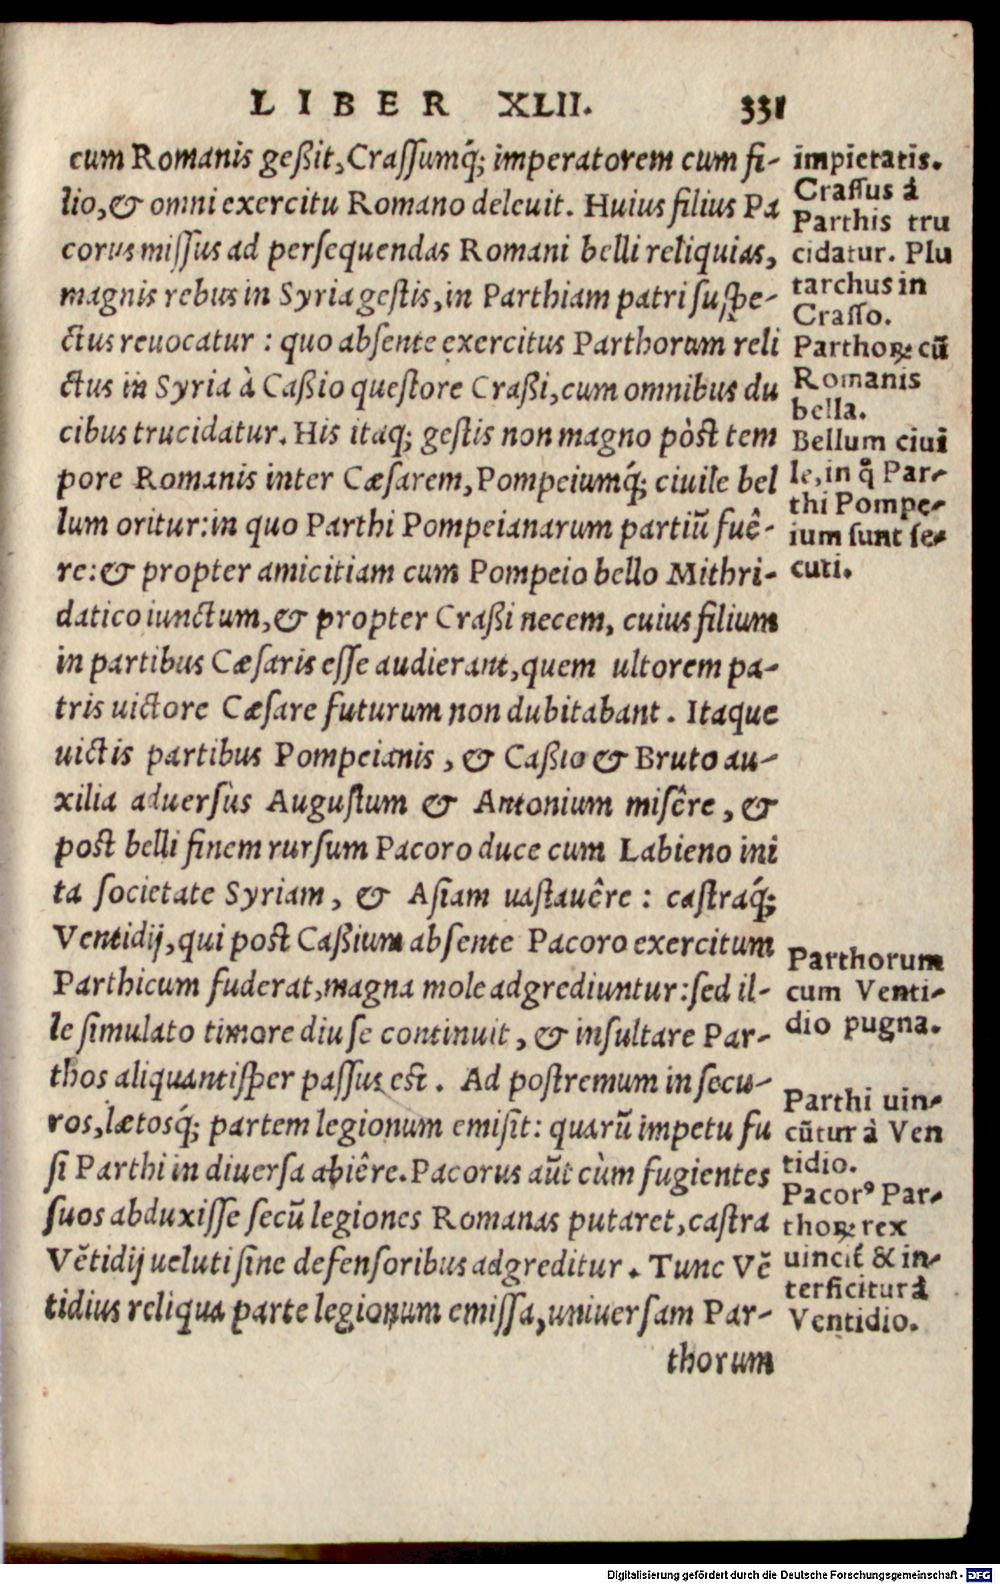 LIBER XLII. 331
cum Romanis geßit, Craſſumq́; imperatorem cum fi-
lio, & omni exercitu Romano deleuit. Huius filius Pa
corus miſſus ad perſequendas Romani belli reliquias,
magnis rebus in Syria geſtis, in Parthiam patri ſuſpe-
ctus reuocatur : quo abſente exercitus Parthorum reli
ctus in Syria à Caßio queſtore Craßi, cum omnibus du
cibus trucidatur. His itaq; geſtis non magno pòst tem
pore Romanis inter Cæſarem, Pompeiumq́; ciuile bel
lum oritur: in quo Parthi Pompeianarum partiū fuê-
re: & propter amicitiam cum Pompeio bello Mithri-
datico iunctum, & propter Craßi necem, cuius filium
in partibus Cæſaris eſſe audierant, quem ultorem pa-
tris uictore Cæſare futurum non dubitabant. Itaque
uictis partibus Pompeianis, & Caßio & Bruto au-
xilia aduerſùs Auguſtum & Antonium miſêre, &
poſt belli finem rurſum Pacoro duce cum Labieno ini
ta ſocietate Syriam, & Aſiam uaſtauêre: caſtraq́;
Ventidij, qui poſt Caßium abſente Pacoro exercitum
Parthicum fuderat, magna mole adgrediuntur: ſed il-
le ſimulato timore diu ſe continuit, & inſultare Par-
thos aliquantiſper paſſus eſt. Ad poſtremum in ſecu-
ros, lætosq́; partem legionum emiſit: quarū impetu fu
ſi Parthi in diuerſa abiêre. Pacorus aūt cùm fugientes
ſuos abduxiſſe ſecū legiones Romanas putaret, caſtra
Vētidij ueluti ſine defenſoribus adgreditur. Tunc Vē
tidius reliqua parte legionum emiſſa, uniuerſam Par-
thorum
impietatis.
Craſſus á
Parthis tru
cidatur. Plu
tarchus in
Craſſo.
Parthoꝝ cū
Romanis
bella.
Bellum ciui
le, in q̃ Par-
thi Pompe-
ium ſunt ſe-
cuti.
Parthorum
cum Venti-
dio pugna.
Parthi uin-
cūtur à Ven
tidio.
Pacorꝰ Par-
thoꝝ rex
uincit̃ & in-
terficitur á
Ventidio.
Digitalisierung gefördert durch die Deutsche Forschungsgemeinschaft - DFG